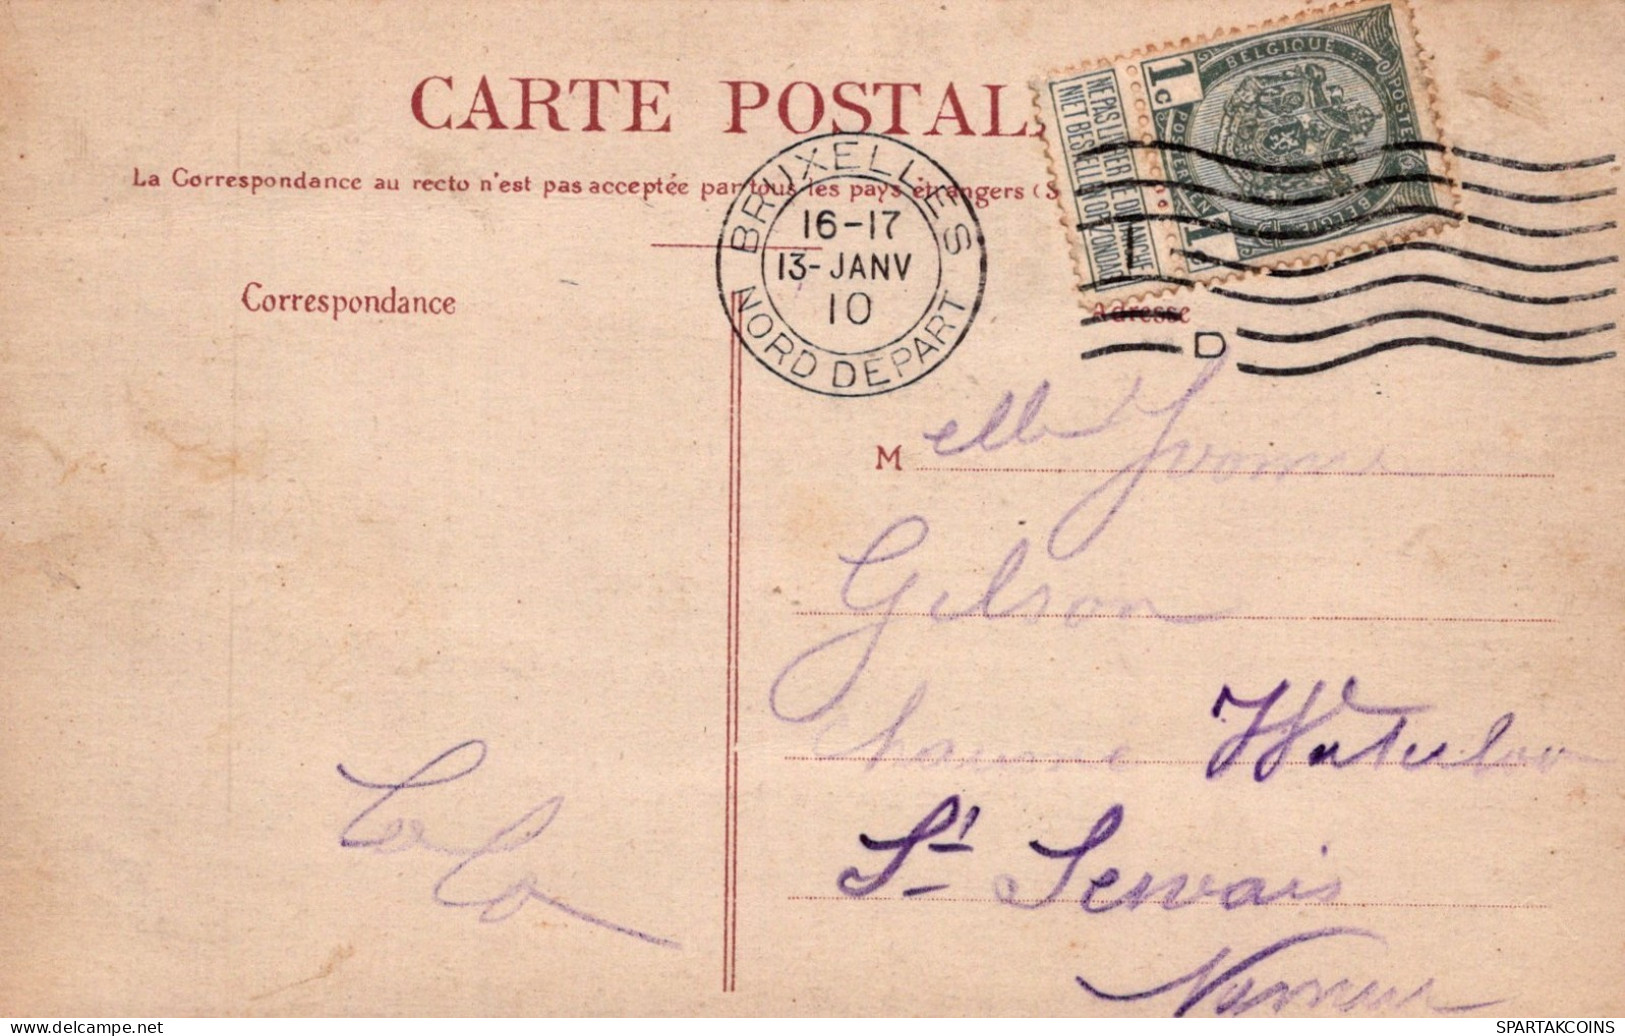 CARTE POSTAL
La Correspondance au recto n'est pas acceptée par tous les pays étrangers (S
BRUXELLES
16-17
13-JANV
10
NORD DÉPART
BELGIQUE
POSTES
1c
POSTERIJEN
BELGIË
1c
NE PAS LIVRER LE DIMANCHE
NIET BESTELLEN OP ZONDAG
D
Correspondance
Adresse
M elle Yvonne
Gilson
Waterloo
St Servais
Namur
SPARTAKCOINS
delcampe.net